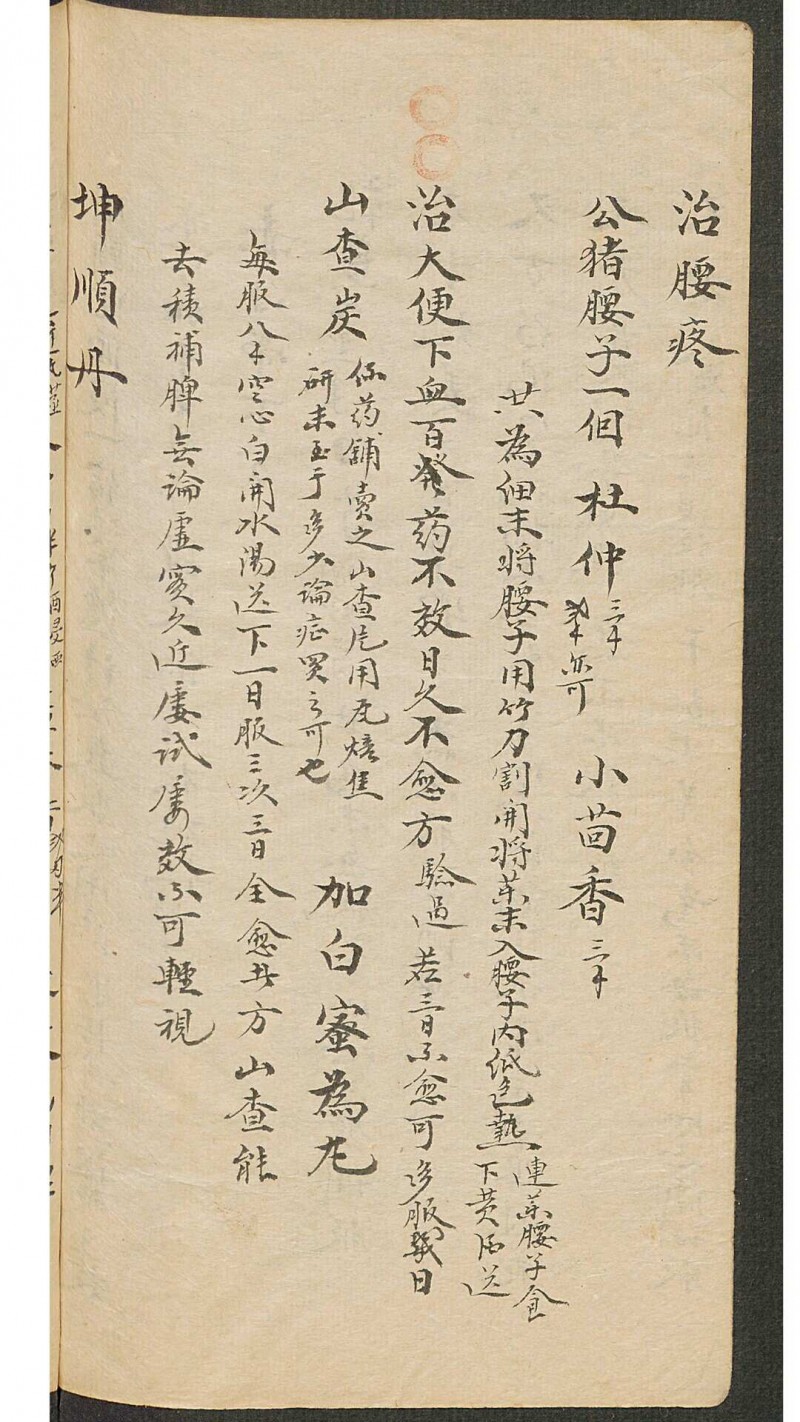 治腰疼
公猪腰子一個 杜仲三钱 炒亦可 小茴香三钱
共為细末將腰子用竹刀割開將药末入腰子內纸包熟連药腰子食
下黄酒送
治大便下血百發药不效日久不愈方驗過若三日不愈可多服幾日
山查炭
係药舖卖之山查片用瓦焙焦
研末至于多少論症買之可也
加白蜜為丸
每服八钱空心白開水湯送下一日服三次三日全愈此方山查能
去積補脾無論虛實久近屢試屢效不可輕視
坤順丹